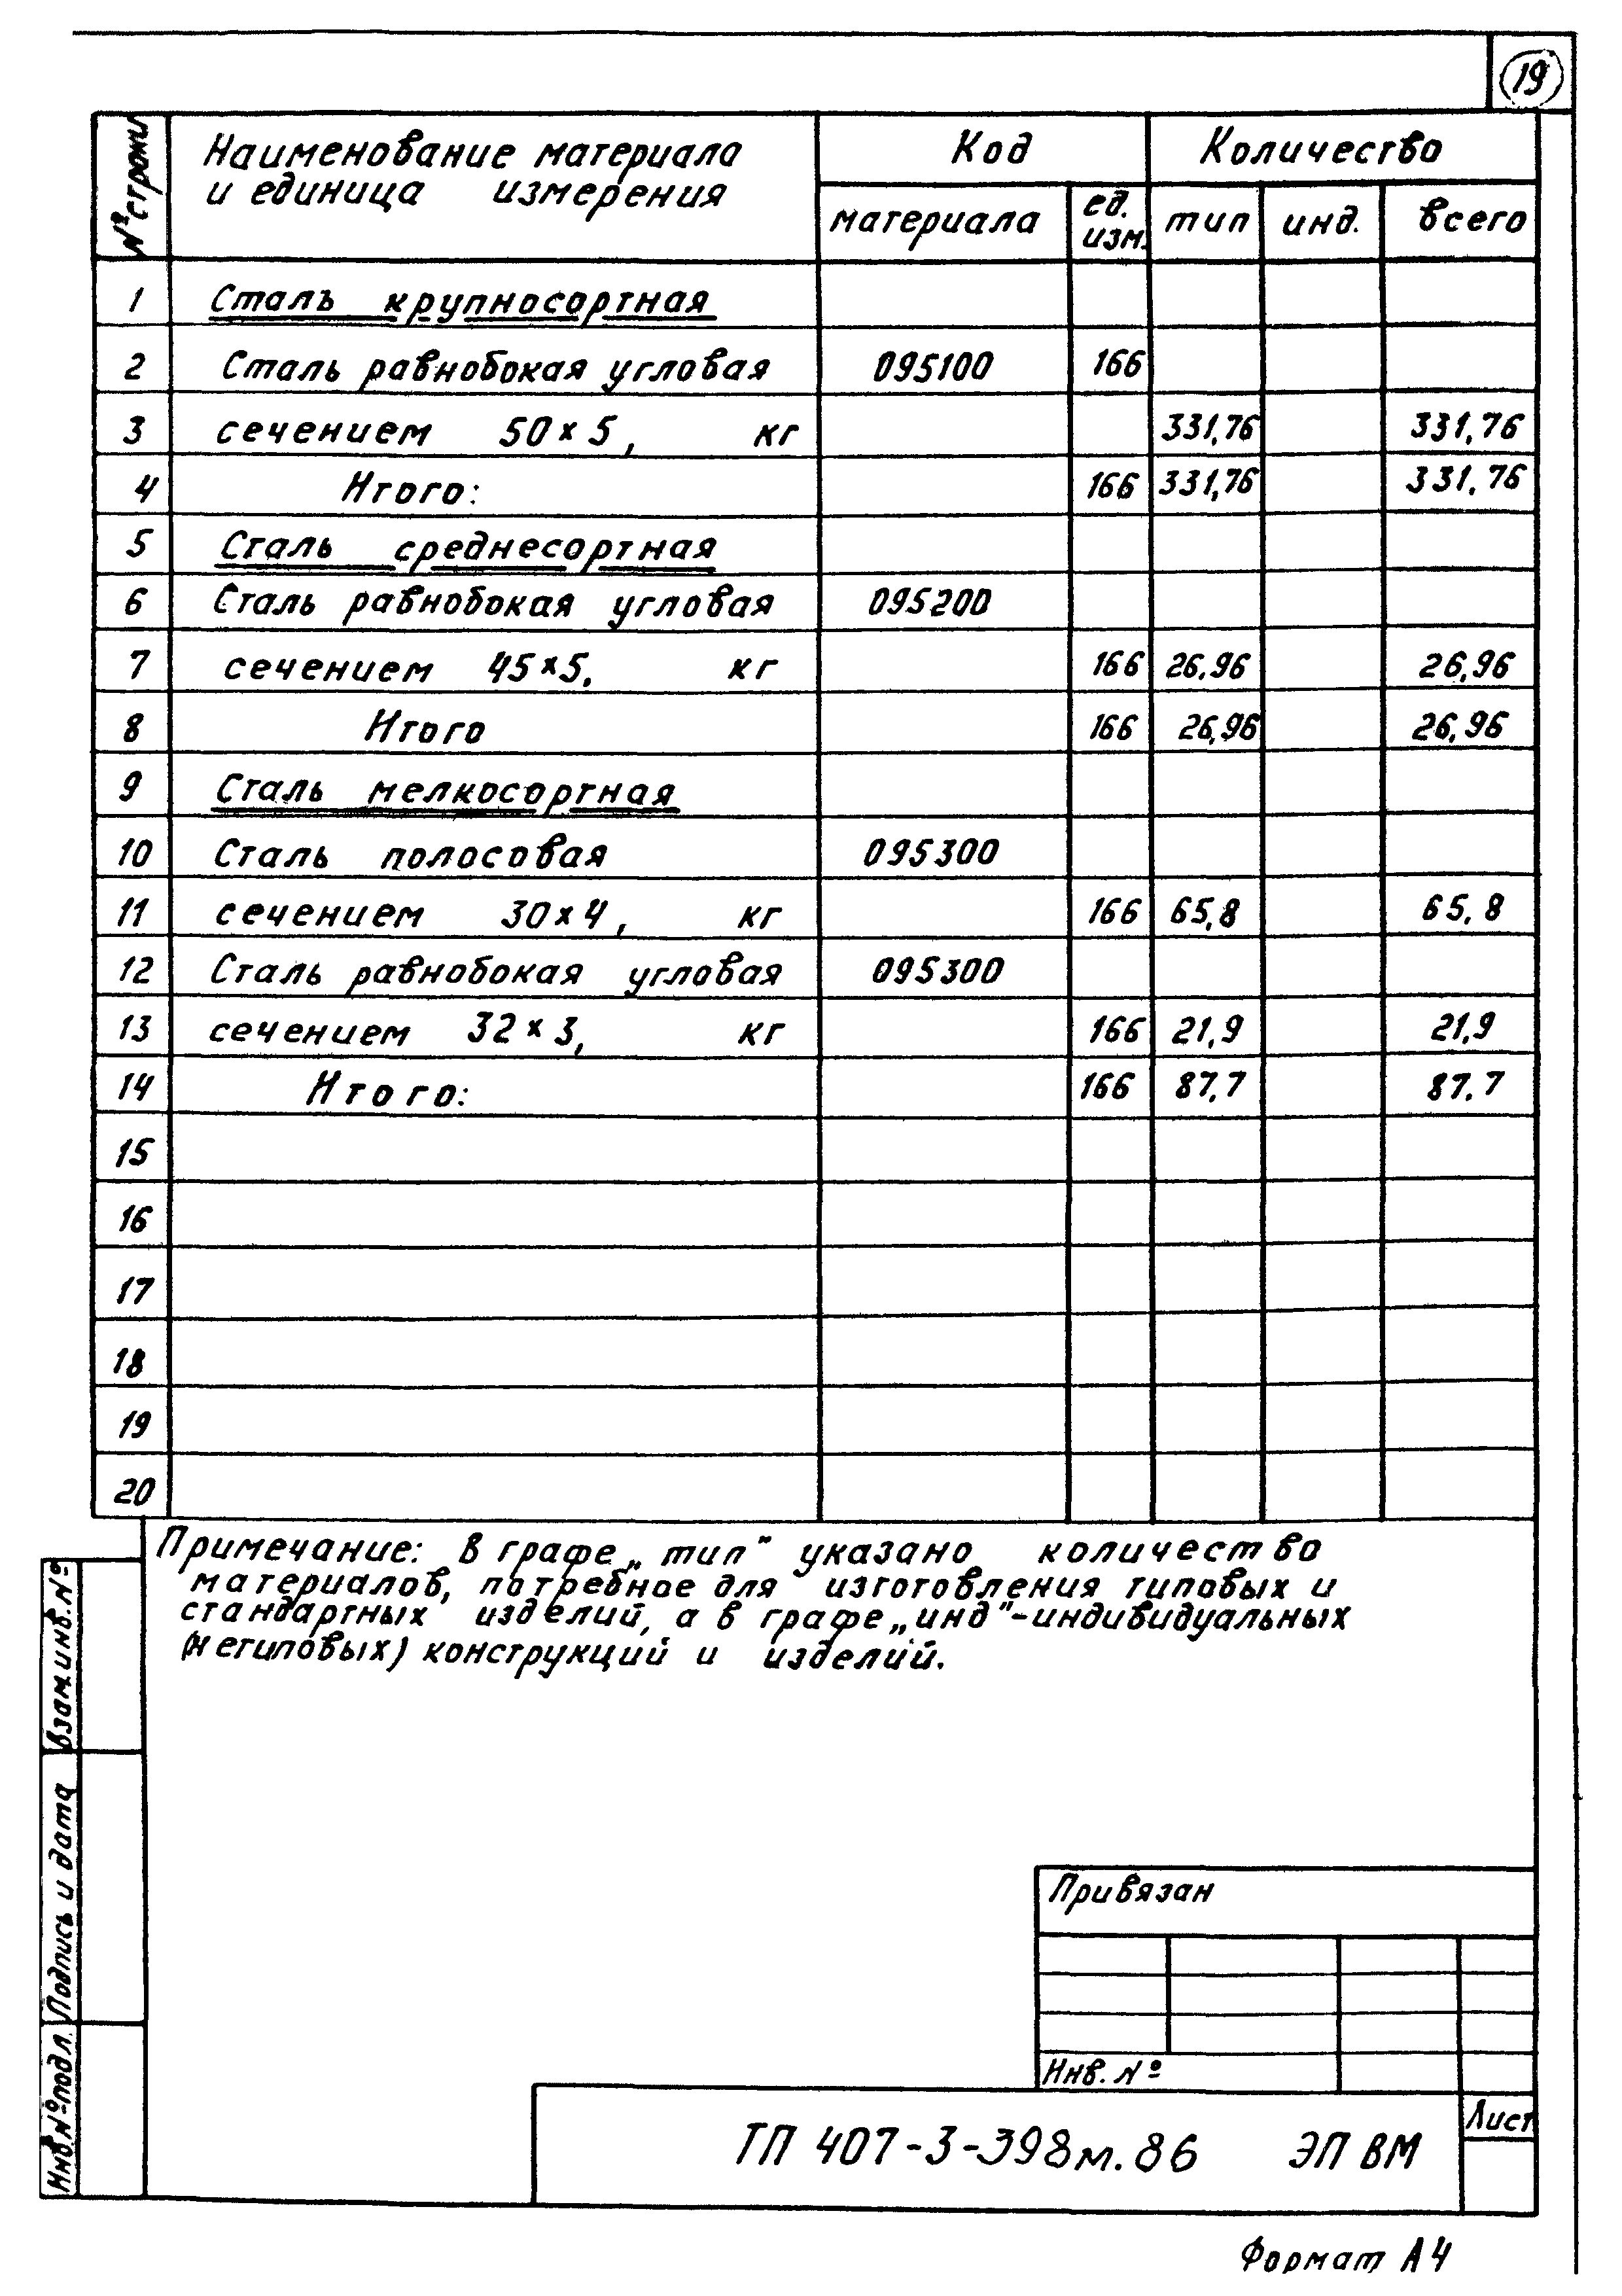 19
№ строки Наименование материала и единица измерения Код Количество
материала ед. изм. тип инд. всего
1 Сталь крупносортная
2 Сталь равнобокая угловая 095100 166
3 сечением 50×5, кг 331,76 331,76
4 Итого: 166 331,76 331,76
5 Сталь среднесортная
6 Сталь равнобокая угловая 095200
7 сечением 45×5, кг 166 26,96 26,96
8 Итого 166 26,96 26,96
9 Сталь мелкосортная
10 Сталь полосовая 095300
11 сечением 30×4, кг 166 65,8 65,8
12 Сталь равнобокая угловая 095300
13 сечением 32×3, кг 166 21,9 21,9
14 Итого: 166 87,7 87.7
15
16
17
18
19
20
Примечание: В графе „тип" указано количество
материалов, потребное для изготовления типовых и
стандартных изделий, а в графе „инд"-индивидуальных
(нетиповых) конструкций и изделий.
Взам.инв.№
Подпись и дата
Инв.№подл.
Привязан
Инв. №
ТП 407-3-398м.86 ЭП ВМ
Лист
Формат А4